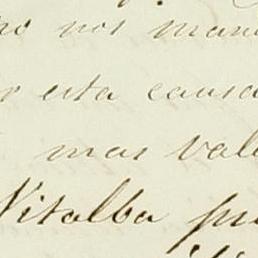 no nos man
r esta causa
mas val
Vitalba pu